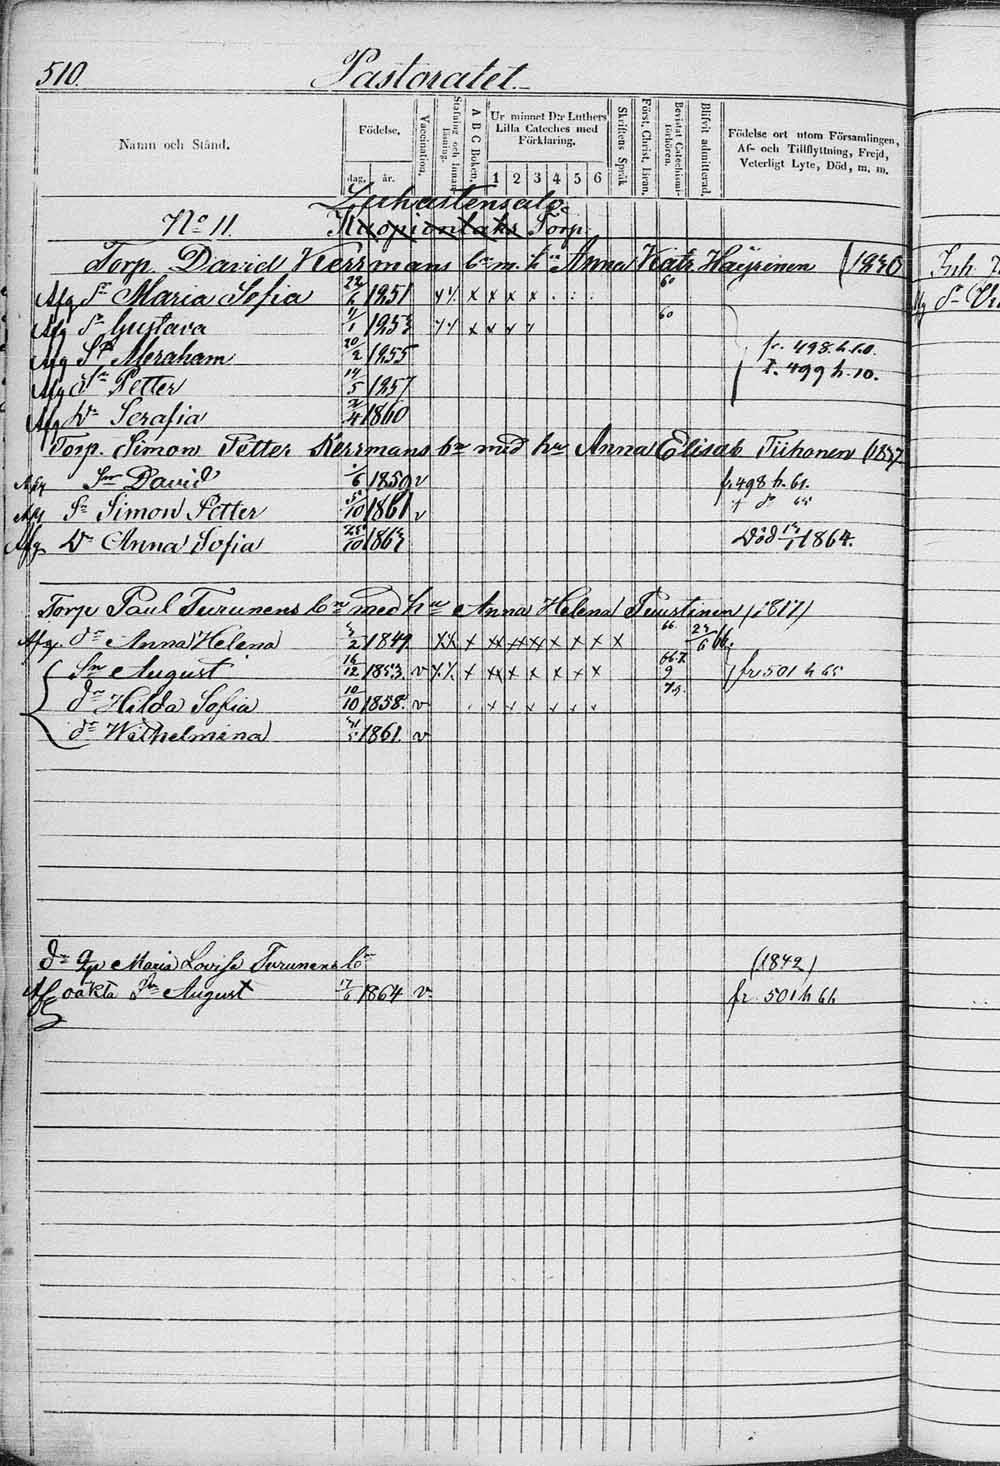 510. Pastoratet.
Namn och Stånd.
Födelse,
dag. år.
Vaccination.
Stafning och Innanläsning.
A B C Boken.
Ur minnet D:r Luthers Lilla Cateches med Förklaring.
1 2 3 4 5 6
Skriftens Språk
Först. Christ. Läran.
Bevistat Catechismi-förhören.
Blifvit admitterad.
Födelse ort utom Församlingen, Af- och Tillflyttning, Frejd, Veterligt Lyte, Död, m. m.
Luhastensalo
No 11. Kuopionlaks Torp.
Torp. David Kerrmans bn m. h:n Anna Katr. Häyrinen (1830
Afg Dr Maria Sofia 22/6 1851 x x x x 60
Afg Dr Gustava /1 1853 x x x 60
Afg Sn Abraham 20/2 1855 fr. 498. h. 60.
Afg Sn Petter 14/5 1857 T. 499 h. 10.
Afg Dr Serafia 2/4 1860
Torp. Simon Petter Kerrmans bn med hu Anna Elisab Tiihonen (1837
Afg Sn David /6 1859 v fr 498 h. 61.
Afg Sn Simon Petter /10 1861 v
Afg Dr Anna Sofia 25/10 1863 Död 1864.
Torp Paul Turunens bn med hu Anna Helena Puustinen (1817)
Afg. dr Anna Helena 3/2 1849. xx x xx xx xx x x x x 66. 24/6 66.
Sn August 16/12 1853. v x x xx x x x x x 66.7. 9 fr 501 h 65
dr Hilda Sofia 10/10 1858. v x x x x x x 7.9.
dr Wilhelmina 31/5 1861. v
dr qp Maria Lovisa Turunens bn (1842)
Afg oäkta Sn August 17/6 1864 v fr. 501 h 66
Inh.